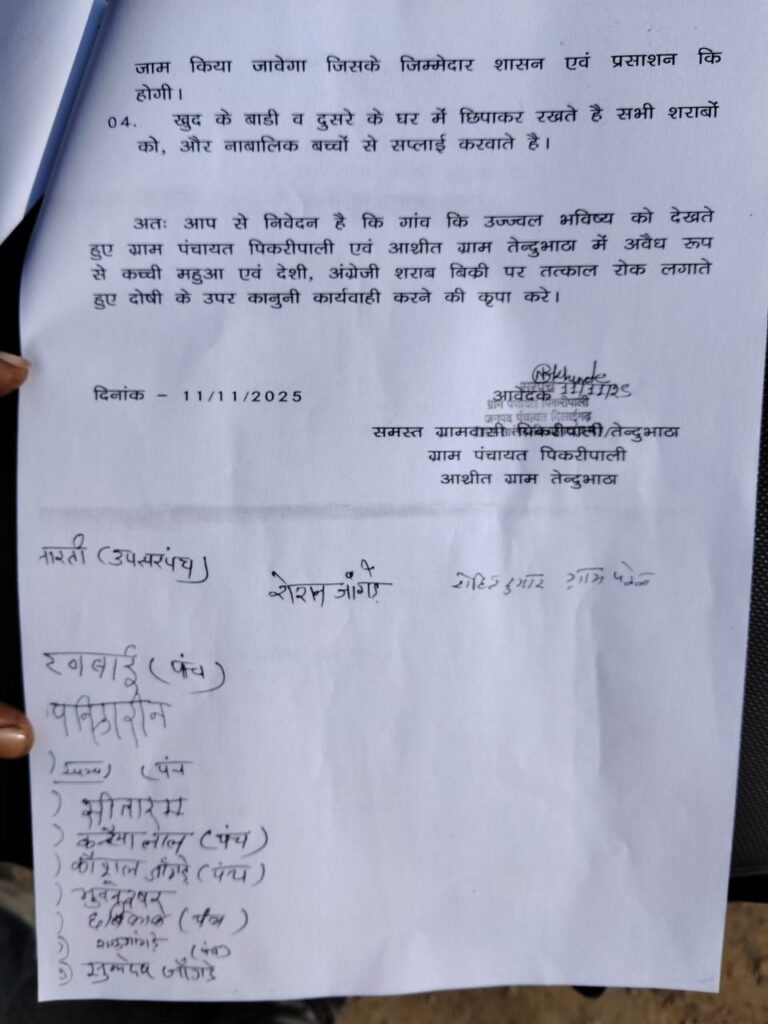 जाम किया जावेगा जिसके जिम्मेदार शासन एवं प्रसाशन कि
होगी।
04. खुद के बाडी व दुसरे के घर में छिपाकर रखते है सभी शराबों
को, और नाबालिक बच्चों से सप्लाई करवाते है।
अतः आप से निवेदन है कि गांव कि उज्ज्वल भविष्य को देखते
हुए ग्राम पंचायत पिकरीपाली एवं आशीत ग्राम तेन्दुभाठा में अवैध रूप
से कच्ची महुआ एवं देशी, अंग्रेजी शराब बिकी पर तत्काल रोक लगाते
हुए दोषी के उपर कानुनी कार्यवाही करने की कृपा करे।
सरपंच 11/11/25
दिनांक – 11/11/2025 आवेदक
ग्राम पंचायत पिकरीपाली
जनपद पंचायत बिलाईगढ़
समस्त ग्रामवासी पिकरीपाली/तेन्दुभाठा
ग्राम पंचायत पिकरीपाली
आशीत ग्राम तेन्दुभाठा
भारती (उपसरपंच)
जाँगड़े
कुमार ग्राम
(पंच)
(पंच
सीताराम
कन्हैया लाल (पंच)
कौशल जाँगड़े (पंच)
(पंच)
(पंच)
जाँगड़े